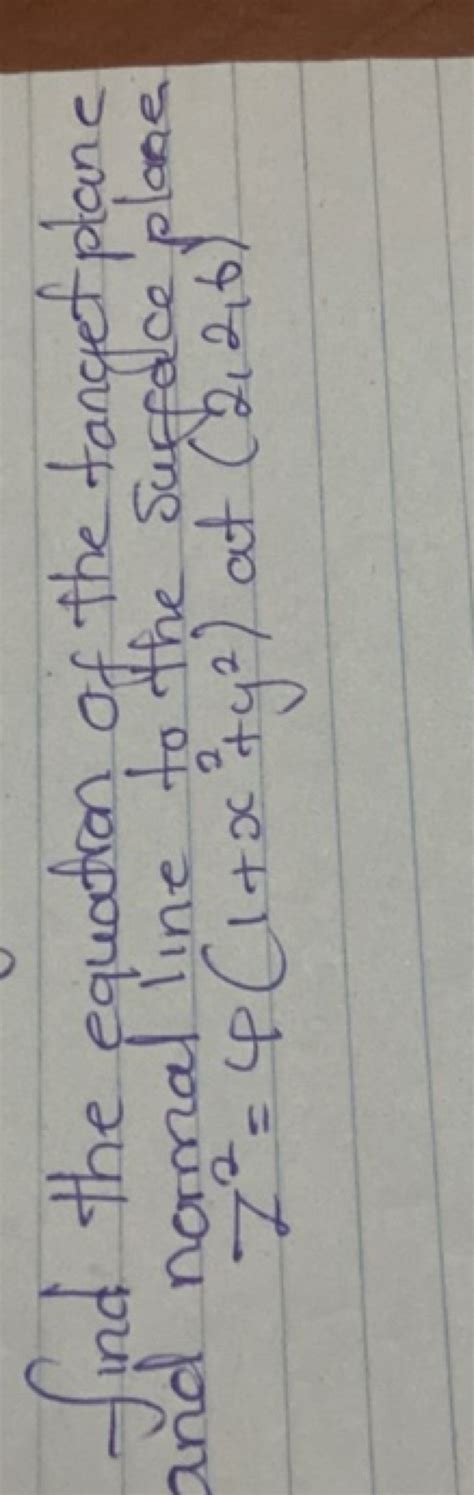 find the equation of the tanget plane
and normal line to the surface plane
Z² = 4(1+x²+y²) at (2,2,6)